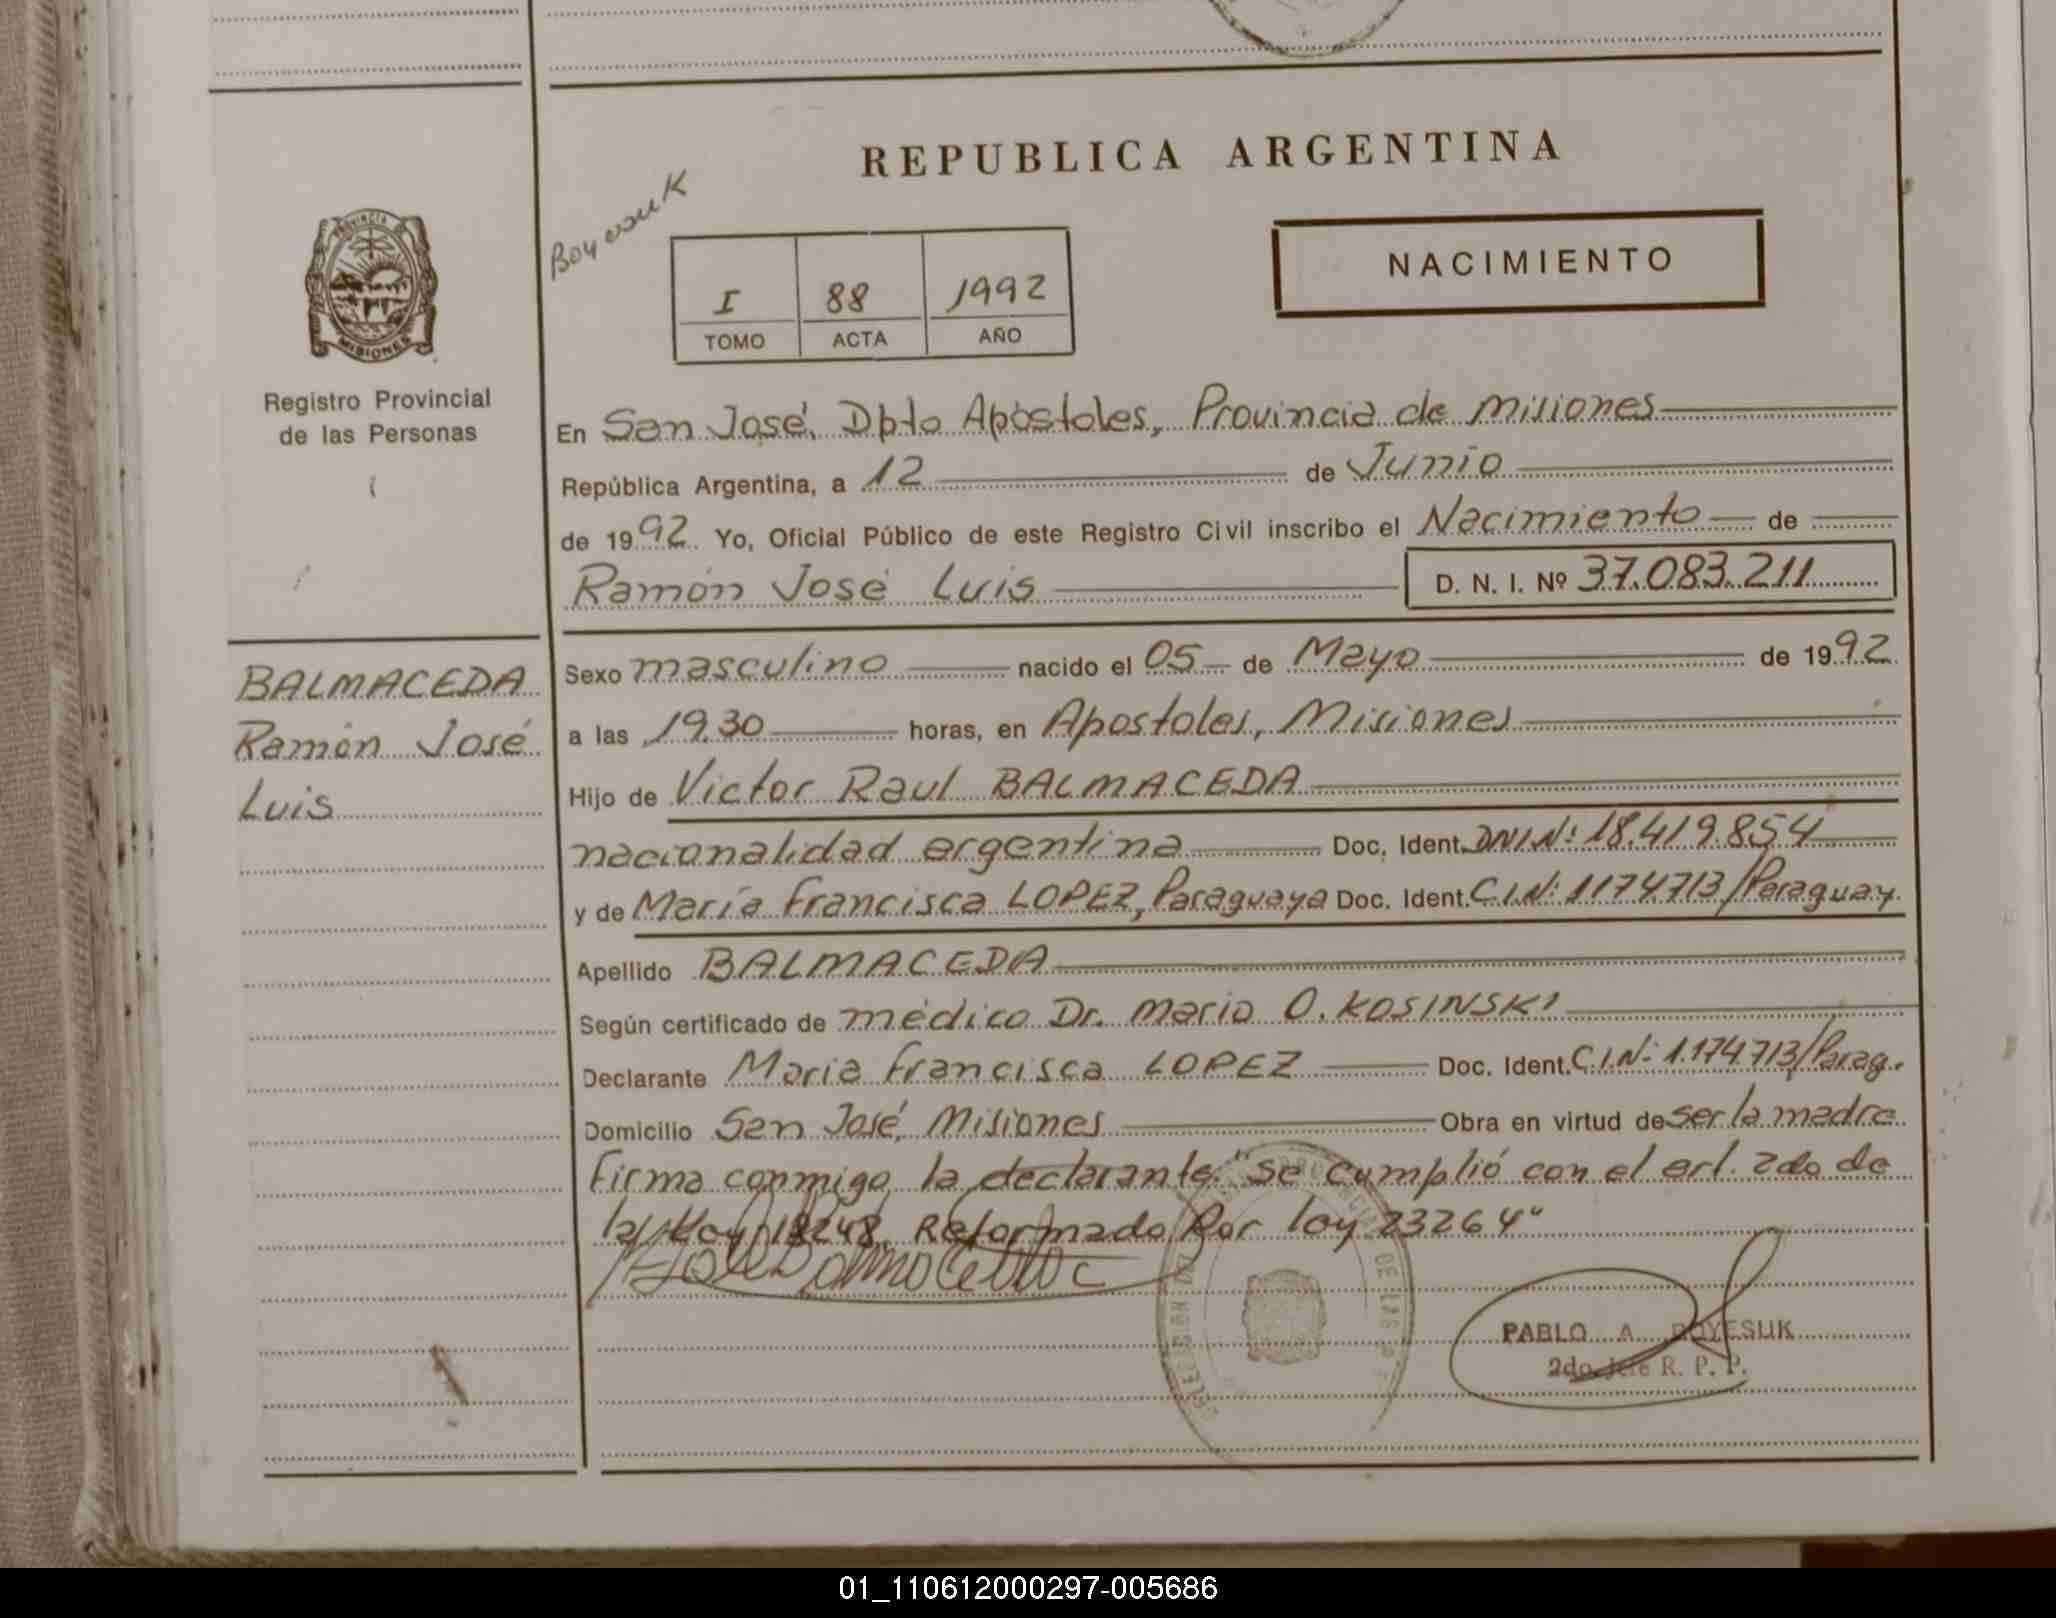 REPUBLICA ARGENTINA
Boyesuk
NACIMIENTO
I 88 1992
TOMO ACTA AÑO
PROVINCIA DE
MISIONES
Registro Provincial
de las Personas
En San José, Dpto Apóstoles, Provincia de Misiones
República Argentina, a 12 de Junio
de 1992. Yo, Oficial Público de este Registro Civil inscribo el Nacimiento de
Ramón José Luis D. N. I. Nº 37.083.211
BALMACEDA
Ramón José
Luis
Sexo masculino nacido el 05 de Mayo de 1992
a las 19.30 horas, en Apostoles, Misiones
Hijo de Victor Raul BALMACEDA
nacionalidad argentina Doc. Ident. DNI.Nº: 18.419.854
y de María Francisca LOPEZ, Paraguaya Doc. Ident. C.I.Nº: 1174713/Paraguay.
Apellido BALMACEDA
Según certificado de médico Dr. Mario O. KOSINSKI
Declarante Maria Francisca LOPEZ Doc. Ident. C.I.Nº 1.174.713/Parag.
Domicilio San José, Misiones Obra en virtud de ser la madre
Firma conmigo la declarante. "Se cumplió con el art. 2do de
la Ley 18248, Reformado Por ley 23264"
PABLO A. BOYESUK
2do. Jefe R. P. P.
01_110612000297-005686